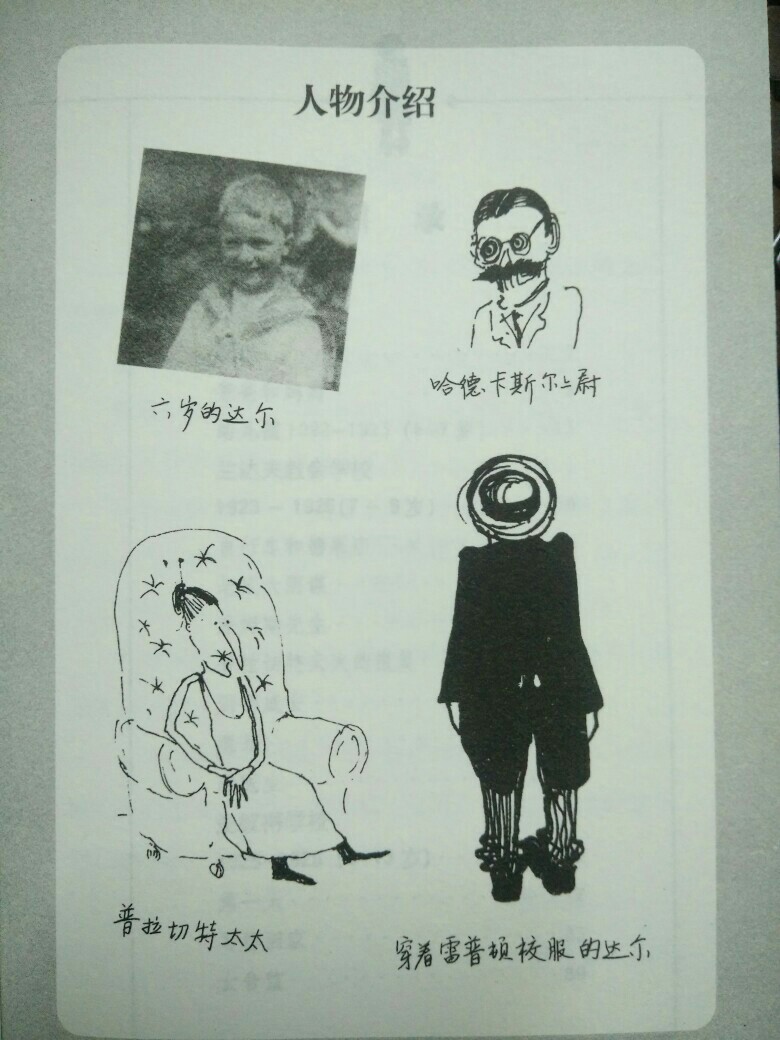 人物介绍
六岁的达尔
哈德卡斯尔上尉
普拉切特太太
穿着雷普顿校服的达尔